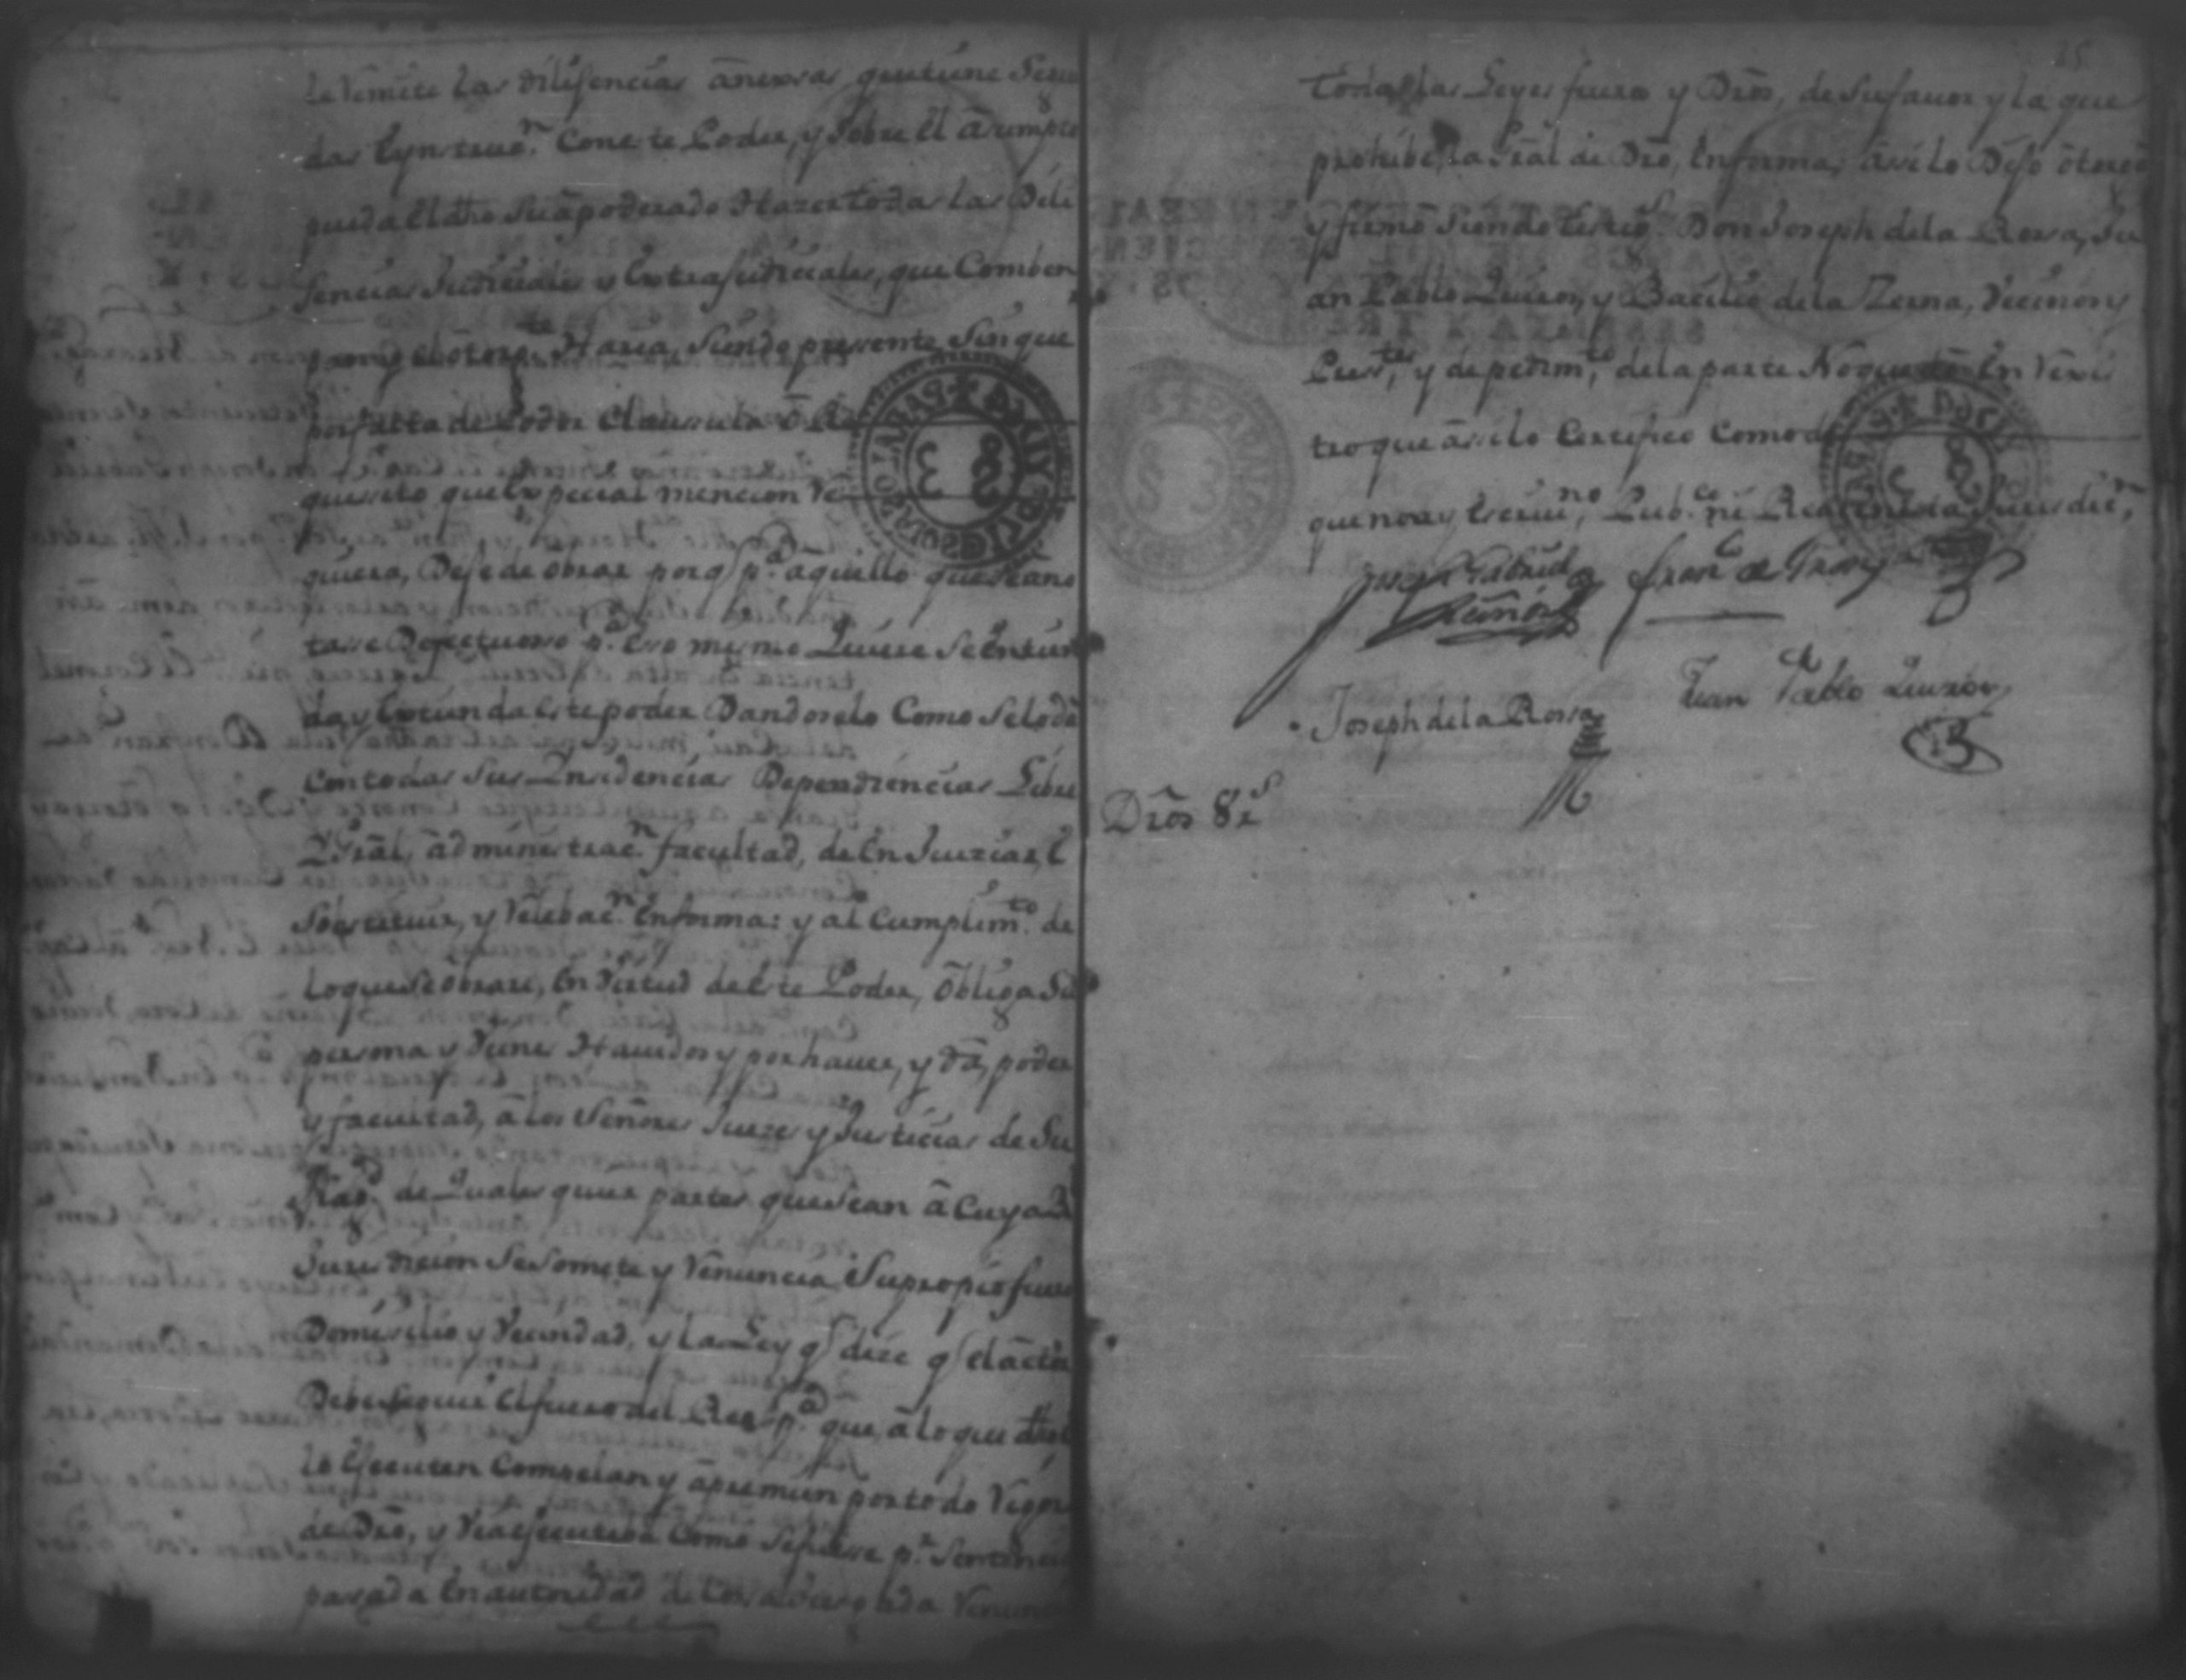 le Remite las dilisencias anexsas que tiene Segui
das Eynstruᵒⁿ. Con este Poder, y sobre El asumpto
pueda El dho Su apoderado Hazer todas las Dili
sencias Judiciales y Extrajudiciales, que Comben
como el otorgᵗᵉ Haria, Siendo presente Sin que
por falta de Poder Clausula ô
quisito que Expecial mencion Re
quiera, Deje de obrar porq̄ pᵃ. aquello que
Defectuoso pᵃ. Eso mesmo Quiere Se Entien
da y Extienda Este poder Dandoselo Como Se lo dâ
Con todas Sus Ynsidencias Dependiencias Libre
Y Gral, administracⁿ. facultad, de En Juiziar, E
Sobstituir, y Relebacⁿ. En forma: y al Cumplimᵗᵒ. de
lo que Se obrare, En Virtud de Este Poder, obliga Su
persona y Vienes Havidos y por haver, y dâ, poder
y facultad, â los Señores Juezes y Justicias de Su
Magᵈ. de Quales quier partes que Sean â Cuya
Jurisdicion Se Somete y Renuncia Su propio fuero
Domisilio y Vecindad, y la Ley q̄ dize q̄ el actor
Debe Seguir El fuero del Reo pᵃ. que, â lo que dho Es
le Ejecuten Compelan y apremien por todo Rigor
de Dro, y Via ejecutiba Como Si fuese pʳ. Sentencia
pasada En autoridad de Cosa Jusgada Renun
25
todas las Leyes fueros y Dros, de Su favor y la que
prohibe, la Gral de Dro, En forma, asi lo Dijo otorgô
y firmô Siendo testigˢ. Don Joseph de la Rosa, Ju
an Pablo Quiros, y Bacilio de la Zerna, Vecinos y
Presᵗᵉˢ, y de pedimᵗᵒ, de la parte No quedô En Rexis
tro que asi lo Certifico Como
que no ay Escrivⁿᵒ, Pubᶜᵒ. ni Real En Esta Jurisdicⁿ,
Josef Gabriel
Joseph de la Rosa
Juan Pablo Quiros
Dros 8 rˢ